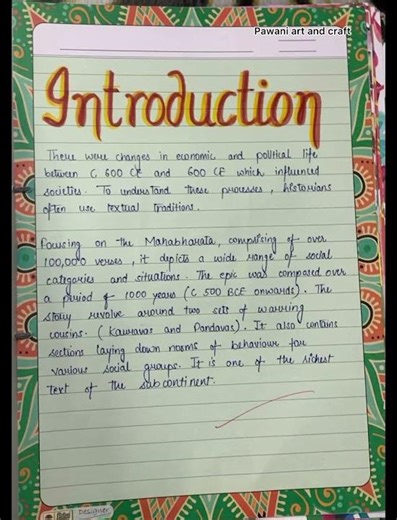 Pawani art and craft
Introduction
There were changes in economic and political life
between C 600 CE and 600 CE which influenced
societies. To understand these processes, historians
often use textual traditions.
Focusing on the Mahabharata, comprising of over
100,000 verses, it depicts a wide range of social
categories and situations. The epic was composed over
a period of 1000 years (C 500 BCE onwards). The
story revolve around two sets of warring
cousins. (Kauravas and Pandavas). It also contains
sections laying down norms of behaviour for
various social groups. It is one of the richest
text of the subcontinent.
Designer